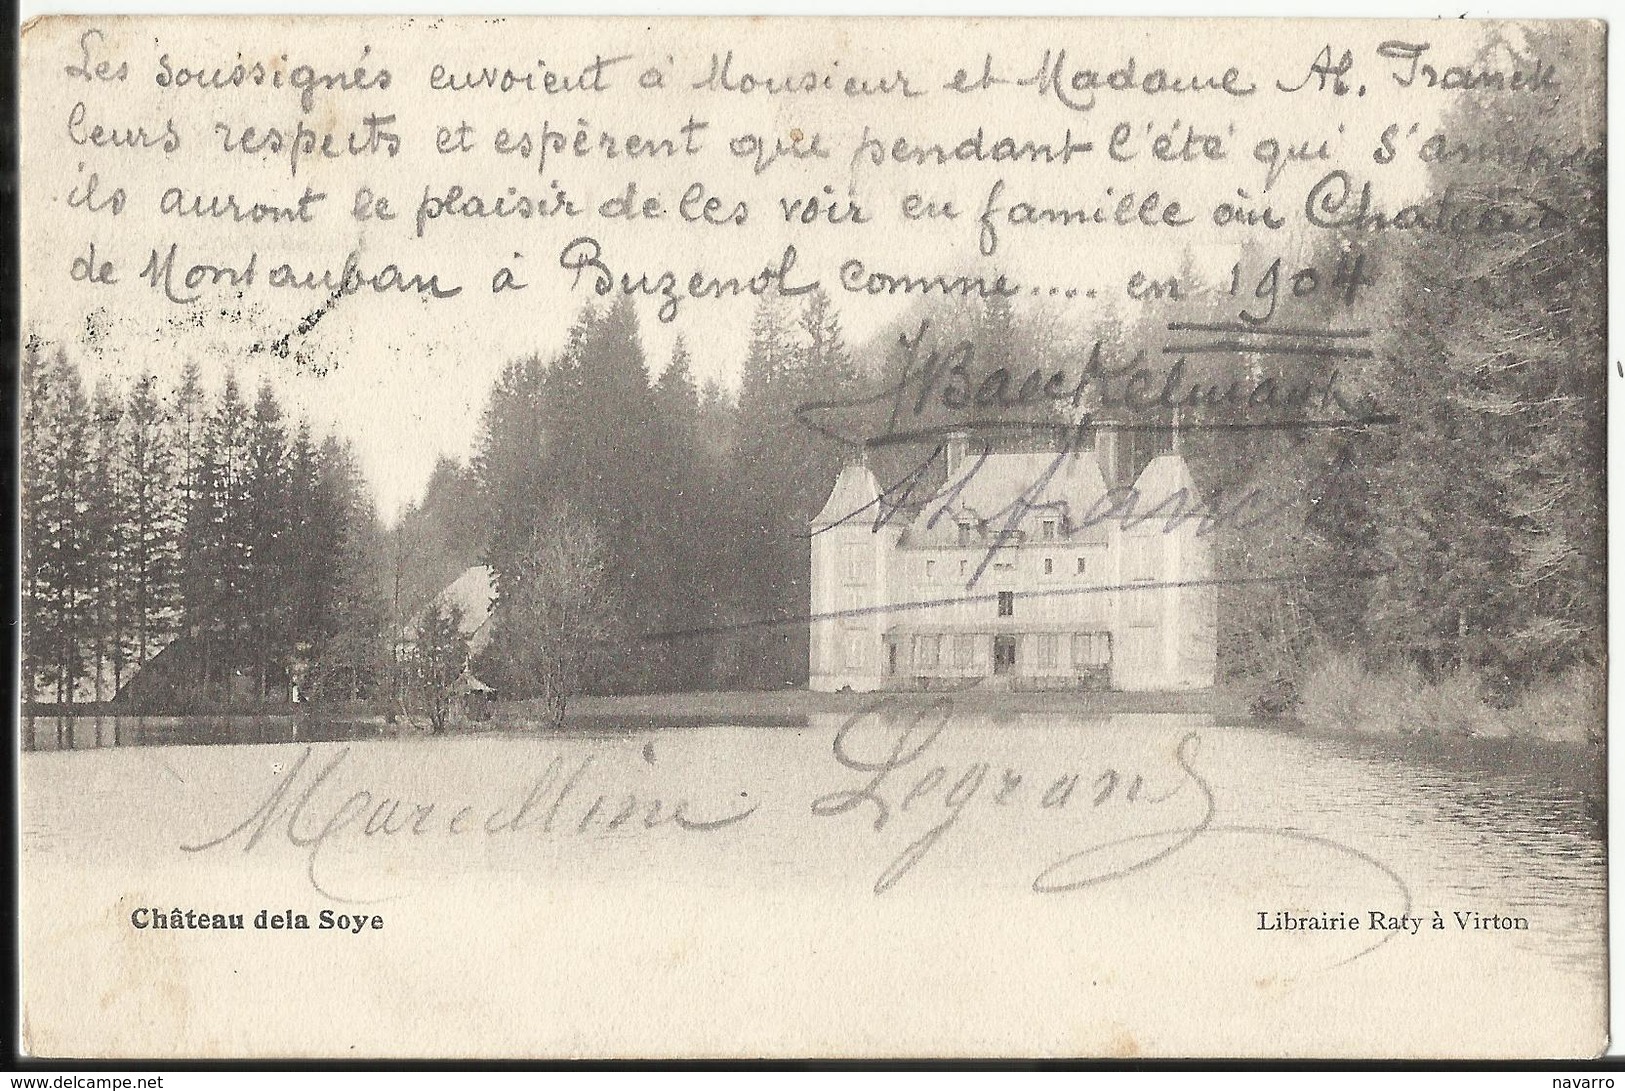 Les soussignés envoient à Monsieur et Madame Al. Franck
leurs respects et espèrent que pendant l'été qui s'annonce
ils auront le plaisir de les voir en famille au Chateau
de Montauban à Buzenol comme.... en 1904
Al. Franck
Marcelline Legrand
Château dela Soye
Librairie Raty à Virton
www.delcampe.net
navarro